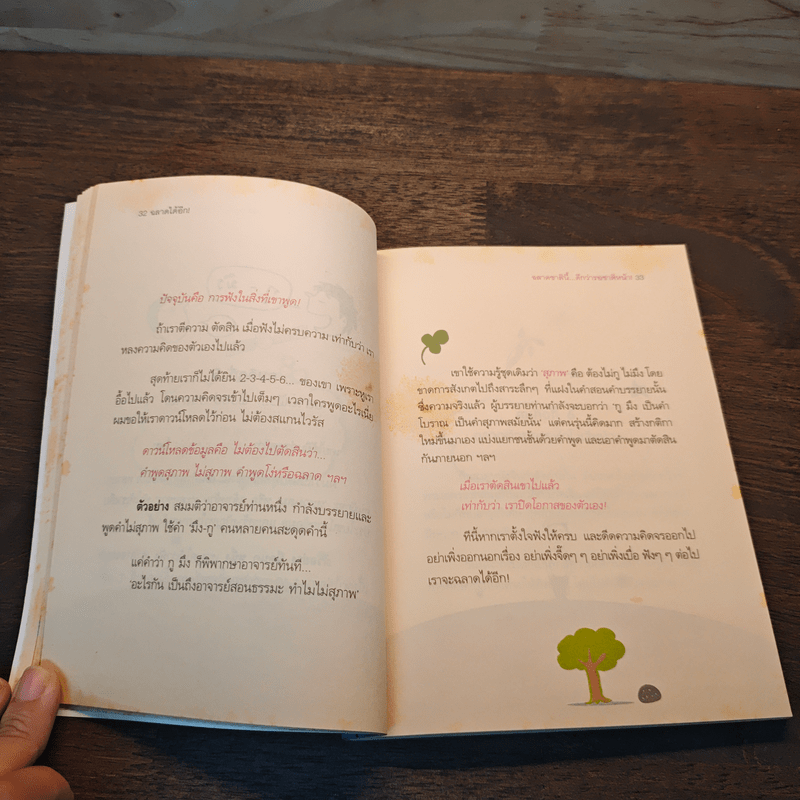 32 ฉลาดได้อีก!
ปัจจุบันคือ การฟังในสิ่งที่เขาพูด!
ถ้าเราตีความ ตัดสิน เมื่อฟังไม่ครบความ เท่ากับว่า เรา
หลงความคิดของตัวเองไปแล้ว
สุดท้ายเราก็ไม่ได้ยิน 2-3-4-5-6... ของเขา เพราะหูเรา
อื้อไปแล้ว โดนความคิดจรเข้าไปเต็มๆ เวลาใครพูดอะไรเนี่ย
ผมขอให้เราดาวน์โหลดไว้ก่อน ไม่ต้องสแกนไวรัส
ดาวน์โหลดข้อมูลคือ ไม่ต้องไปตัดสินว่า...
คำพูดสุภาพ ไม่สุภาพ คำพูดโง่หรือฉลาด ฯลฯ
ตัวอย่าง สมมติว่าอาจารย์ท่านหนึ่ง กำลังบรรยายและ
พูดคำไม่สุภาพ ใช้คำ 'มึง-กู' คนหลายคนสะดุดคำนี้
แค่คำว่า กู มึง ก็พิพากษาอาจารย์ทันที...
'อะไรกัน เป็นถึงอาจารย์สอนธรรมะ ทำไมไม่สุภาพ'
ฉลาดชาตินี้...ดีกว่ารอชาติหน้า! 33
เขาใช้ความรู้ชุดเดิมว่า 'สุภาพ' คือ ต้องไม่กู ไม่มึง โดย
ขาดการสังเกตไปถึงสาระลึกๆ ที่แฝงในคำสอนคำบรรยายนั้น
ซึ่งความจริงแล้ว ผู้บรรยายท่านกำลังจะบอกว่า 'กู มึง เป็นคำ
โบราณ เป็นคำสุภาพสมัยนั้น' แต่คนรุ่นนี้คิดมาก สร้างกติกา
ใหม่ขึ้นมาเอง แบ่งแยกชนชั้นด้วยคำพูด และเอาคำพูดมาตัดสิน
กันภายนอก ฯลฯ
เมื่อเราตัดสินเขาไปแล้ว
เท่ากับว่า เราปิดโอกาสของตัวเอง!
ทีนี้หากเราตั้งใจฟังให้ครบ และดีดความคิดจรออกไป
อย่าเพิ่งออกนอกเรื่อง อย่าเพิ่งจี๊ดๆ ๆ อย่าเพิ่งเบื่อ ฟังๆ ๆ ต่อไป
เราจะฉลาดได้อีก!